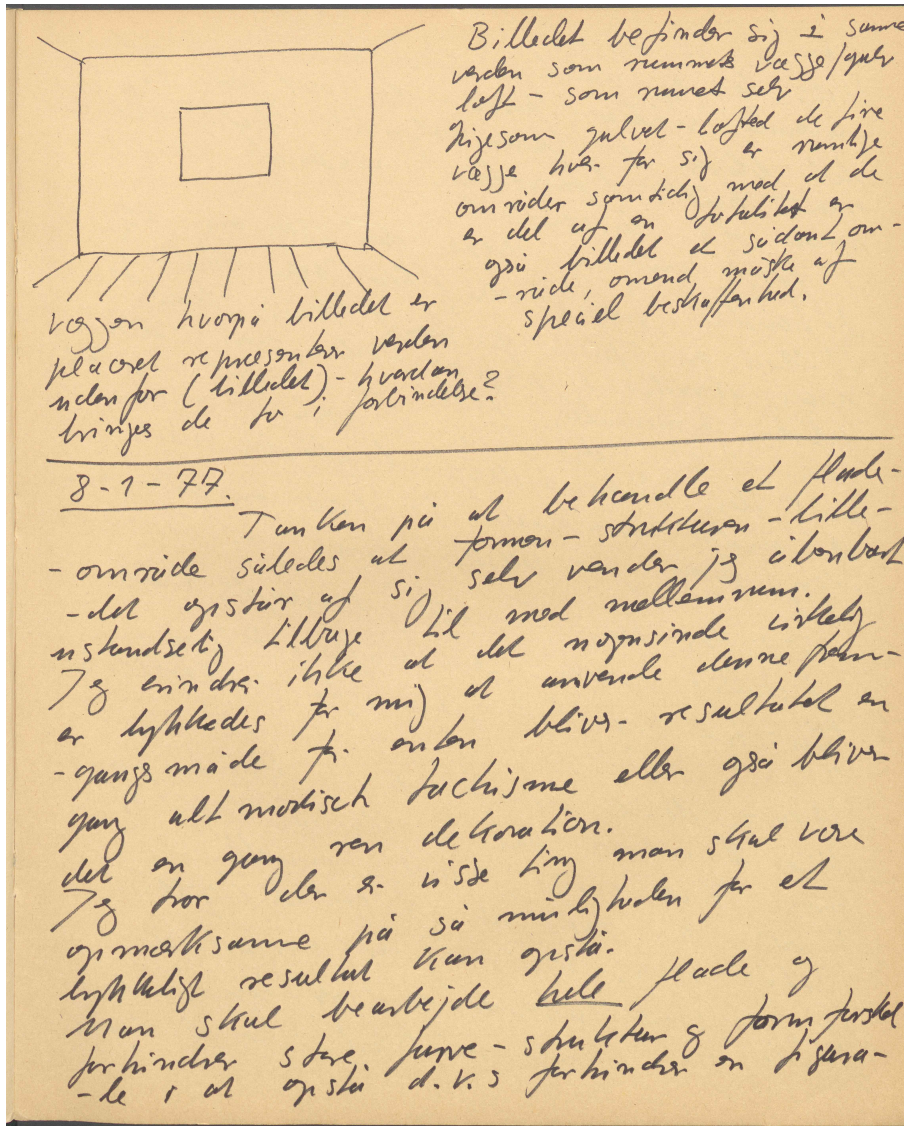 Billedet befinder sig i samme
verden som rummets vægge/gulv
loft - som rummet selv
Ligesom gulvet - loftet de fire
vægge hver for sig er rumlige
områder samtidig med at de
er del af en totalitet er
også billedet et sådant om-
-råde, omend måske af
speciel beskaffenhed.
Væggen hvorpå billedet er
placeret repræsenterer verden
udenfor (billedet) - hvordan
bringes de to i forbindelse?
8-1-77.
Tanken på at behandle et flade-
-område således at formen - strukturen - bille-
-det opstår af sig selv vender jeg åbenbart
ustandselig tilbage til med mellemrum.
Jeg erindrer ikke at det nogensinde virkelig
er lykkedes for mig at anvende denne frem-
-gangsmåde for enten bliver resultatet en
gang altmodisch tachisme eller også bliver
det en gang ren dekoration.
Jeg tror der er visse ting man skal være
opmærksomme på så muligheden for et
lykkeligt resultat kan opstå.
Man skal bearbejde hele flade og
forhindrer store farve - struktur og formforskel
-le i at opstå d.v.s forhindrer en figura-